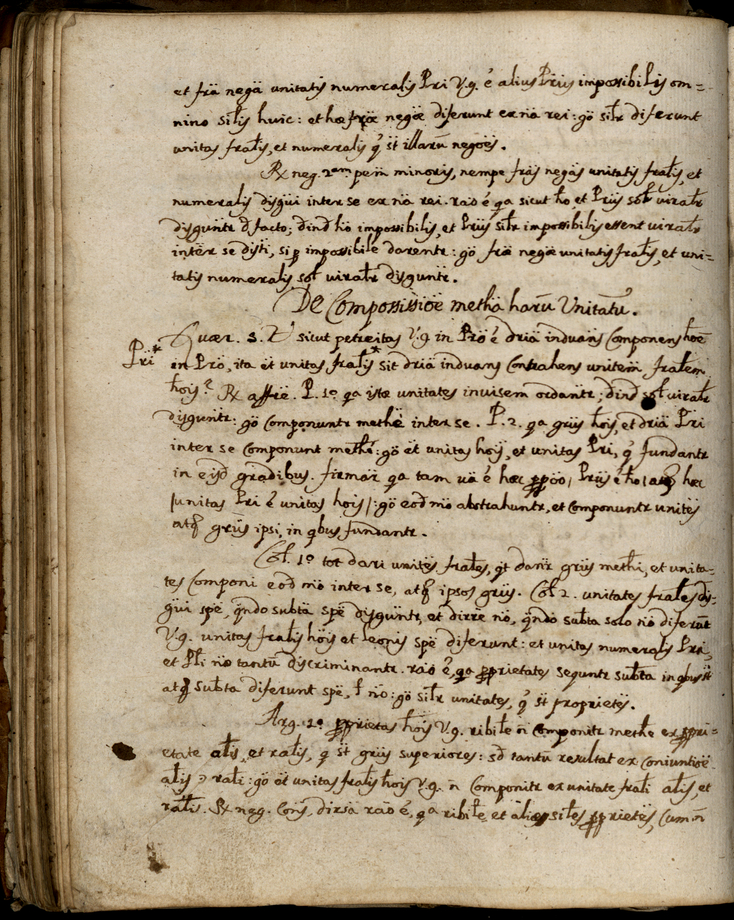 et frã negã unitatis numeralis Pri V.g. ẽ alius Prius impossibilis om=
nino silis huic: et hæ fræ negõe diferunt ex nã rei: gõ silr diferunt
unitas fralis, et numeralis q̃ st̃ illarũ negões.
Rx neg. 2am pem minoris, nempe frãs negãs unitatis fralis, et
numeralis disgui inter se ex nã rei. raõ ẽ qa sicut ho et Prius sol viralr
disguntr d facto; dind hõ impossibilis, et Prius silr impossibilis essent viralr
inter se disti, si p impossibile darentr: gõ frã negãe unitatis fralis, et uni=
tatis numeralis sol viralr disguntr.
De Compossissiõe methã harũ Unitatũ.
Quær. 3. Ut sicut petreitas V.g. in Prõ ẽ driã induans componens hõe
Pri*
in Prõ, ita et unitas fralis* sit driã induans Contrahens unitem fralem
hois? Rx affre. P. 1o qa istæ unitates invisem ordantr; dind sol viralr
disguntr: gõ componuntr methe inter se. P. 2. qa griis hois, et driã Pri
inter se componunt methe: gõ et unitas hois, et unitas Pri, q̃ fundantr
in eisd gradibus. firmar qa tam va ẽ hæc ppõo, Prius ẽ ho, atq hæc
/unitas Pri ẽ unitas hois/: gõ eod mõ abstrahuntr, et componuntr unites
atq griis ipsi, in qbus fundantr.
Col. 1o tot dari unites frales, qt dantr griis methi, et unita-
tes componi eod mõ inter se, atq ipsos griis. Col 2. unitates frales dis-
gui spe, qndo subta spe disguntr, et dirre nõ, qndo subta solo nõ diferut
V.g. unitas fralis hois et leonis spe diferunt: et unitas numeralis Pri,
et Pli nõ tantũ discriminantr. raõ ẽ, qa pprietates sequntr subta in qbus st̃
atq subta diferunt spe, l nõ: gõ silr unitates, q̃ st̃ proprietes.
Arg. 1o pprietas hois V.g. ribile ñ componitr methe ex ppri=
etate alis, et ralis, q̃ st̃ griis superiores: sd tantũ resultat ex coniuntiõe
alis, ɔ rali: gõ et unitas fralis hois V.g. ñ componitr ex unitate frali alis, et
ralis. Rx neg. Cons, dirsa raõ ẽ, qa ribile, et aliæ siles pprietes, cum ñ